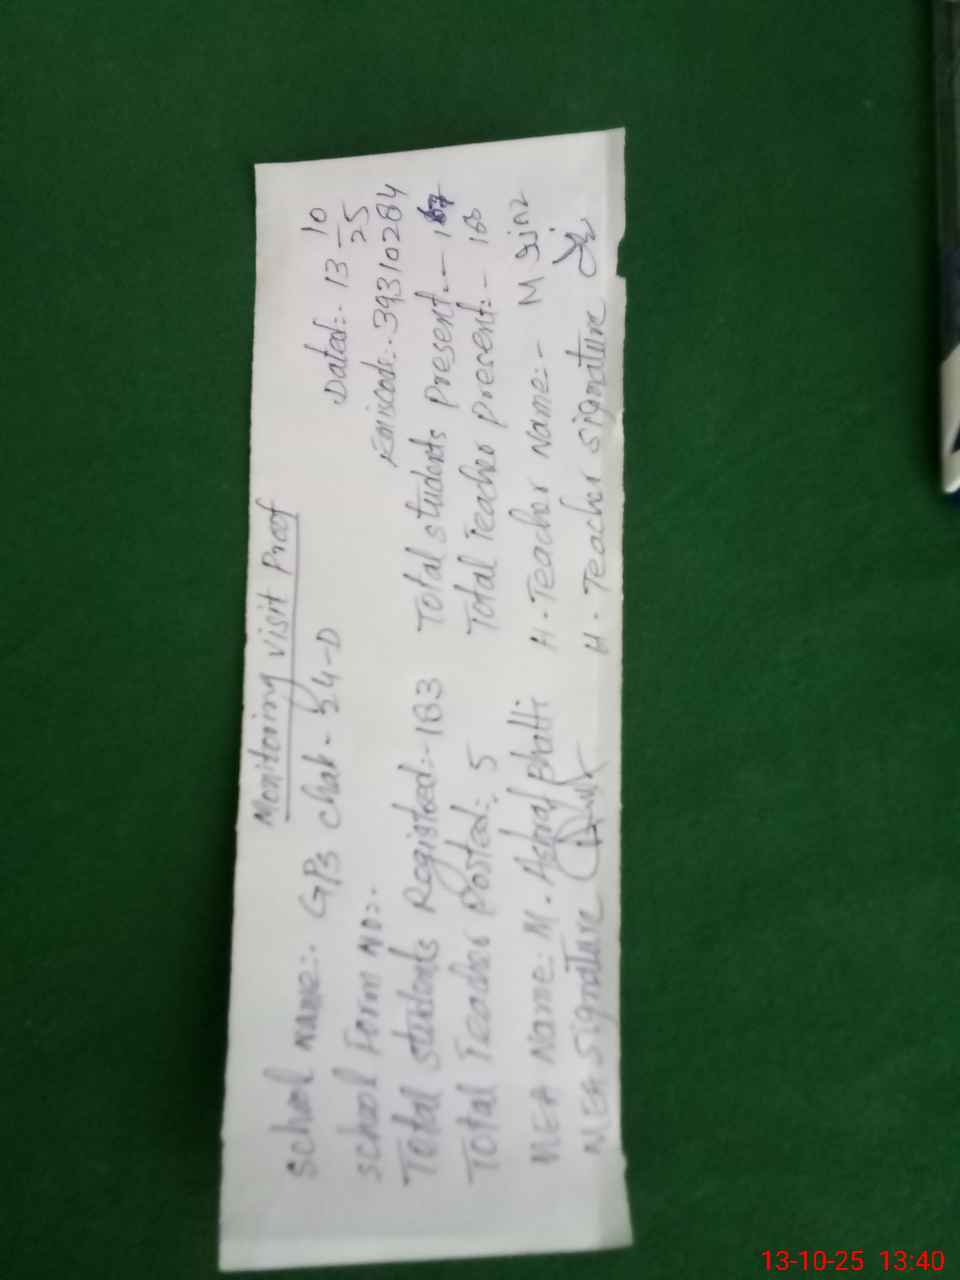 Monitoring visit Proof
School Name:- GPS Chak-34-D
Dated:- 13 10
25
School Form No:-
Emiscode:- 39310284
Total students Registered:- 183
Total students Present:-
Total Teacher Posted:- 5
Total Teacher Present:-
MEA Name: M. Ashraf Bhatti
H-Teacher Name:- M
MEA Signature
H-Teacher Signature
13-10-25 13:40